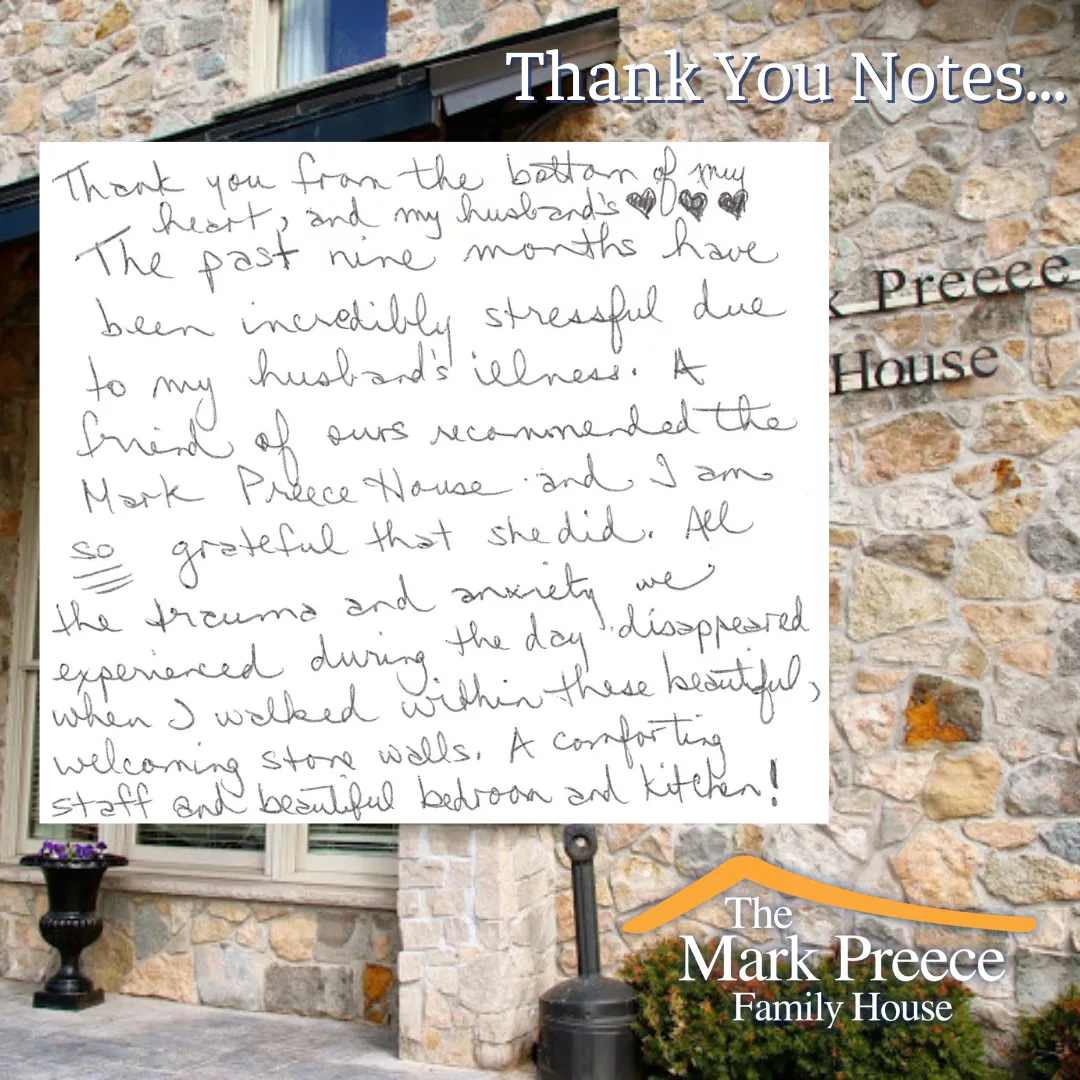 Thank You Notes...
Thank you from the bottom of my
heart, and my husband's ♥ ♥ ♥
The past nine months have
been incredibly stressful due
to my husband's illness. A
friend of ours recommended the
Mark Preece House and I am
so grateful that she did. All
the trauma and anxiety we
experienced during the day disappeared
when I walked within these beautiful,
welcoming stone walls. A comforting
staff and beautiful bedroom and kitchen!
k Preece
House
The
Mark Preece
Family House